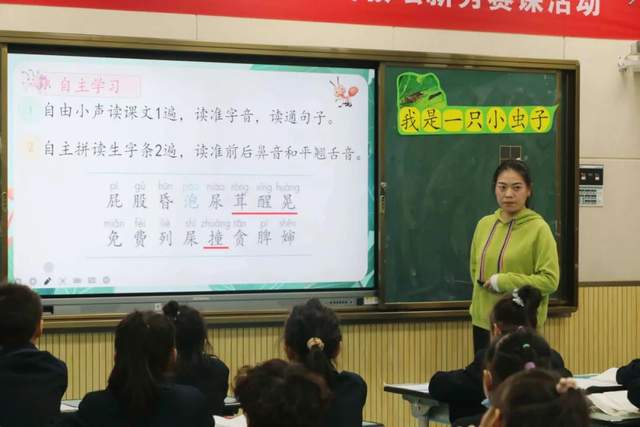 新秀赛课活动
自主学习
1 自由小声读课文1遍，读准字音，读通句子。
2 自主拼读生字条2遍，读准前后鼻音和平翘舌音。
pì gǔ hūn pào niào róng xǐng huàng
屁 股 昏 泡 尿 茸 醒 晃
miǎn fèi liè shǐ zhuàng tān pí shěn
免 费 列 屎 撞 贪 脾 婶
我是一只小虫子